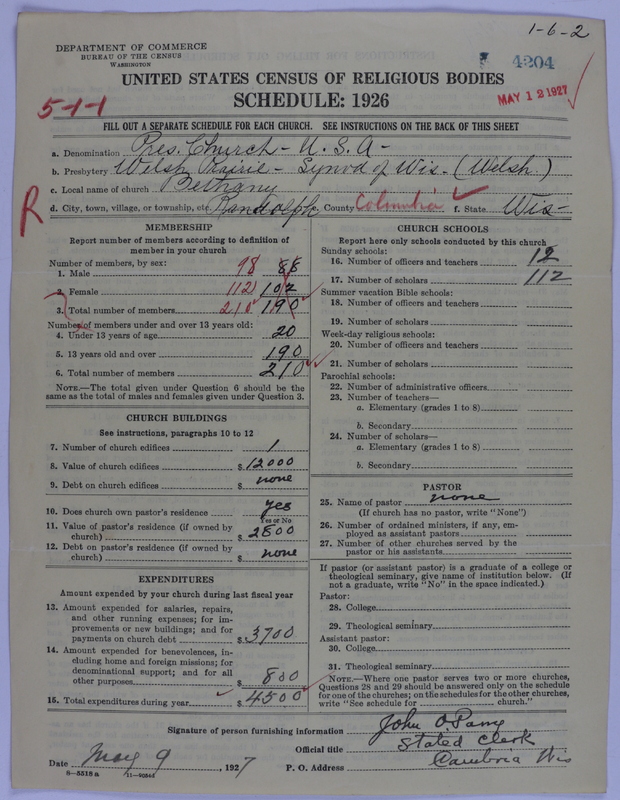 1-6-2
DEPARTMENT OF COMMERCE
BUREAU OF THE CENSUS
WASHINGTON
4204
UNITED STATES CENSUS OF RELIGIOUS BODIES
SCHEDULE: 1926
MAY 12 1927
5-1-1
FILL OUT A SEPARATE SCHEDULE FOR EACH CHURCH. SEE INSTRUCTIONS ON THE BACK OF THIS SHEET
a. Denomination Pres. Church - U. S. A -
b. Presbytery Welsh Prairie - Synod of Wis. (Welsh.)
c. Local name of church Bethany
d. City, town, village, or township, etc. Randolph e. County Columbia f. State Wis-
R
MEMBERSHIP
Report number of members according to definition of
member in your church
Number of members, by sex:
1. Male 98 88
2. Female 112 102
3. Total number of members 210 190
Number of members under and over 13 years old:
4. Under 13 years of age 20
5. 13 years old and over 190
6. Total number of members 210
NOTE.—The total given under Question 6 should be
the same as the total of males and females given under Question 3.
CHURCH BUILDINGS
See instructions, paragraphs 10 to 12
7. Number of church edifices 1
8. Value of church edifices $ 12000
9. Debt on church edifices $ none
10. Does church own pastor's residence yes
Yes or No
11. Value of pastor's residence (if owned by
church) $ 2800
12. Debt on pastor's residence (if owned by
church) $ none
EXPENDITURES
Amount expended by your church during last fiscal year
13. Amount expended for salaries, repairs,
and other running expenses; for im-
provements or new buildings; and for
payments on church debt $ 3700
14. Amount expended for benevolences, in-
cluding home and foreign missions; for
denominational support; and for all
other purposes $ 800
15. Total expenditures during year $ 4500
CHURCH SCHOOLS
Report here only schools conducted by this church
Sunday schools:
16. Number of officers and teachers 12
17. Number of scholars 112
Summer vacation Bible schools:
18. Number of officers and teachers
19. Number of scholars
Week-day religious schools:
20. Number of officers and teachers
21. Number of scholars
Parochial schools:
22. Number of administrative officers
23. Number of teachers—
a. Elementary (grades 1 to 8)
b. Secondary
24. Number of scholars—
a. Elementary (grades 1 to 8)
b. Secondary
PASTOR
25. Name of pastor none
(If church has no pastor, write "None")
26. Number of ordained ministers, if any, em-
ployed as assistant pastors
27. Number of other churches served by the
pastor or his assistants
If pastor (or assistant pastor) is a graduate of a college or
theological seminary, give name of institution below. (If
not a graduate, write "No" in the space indicated.)
Pastor:
28. College
29. Theological seminary
Assistant pastor:
30. College
31. Theological seminary
NOTE.—Where one pastor serves two or more churches,
Questions 28 and 29 should be answered only on the schedule
for one of the churches; on the schedules for the other churches,
write "See schedule for church."
Signature of person furnishing information John O Parry
Official title Stated Clerk
Date May 9, 1927 P. O. Address Cambria Wis
8-5518 a 11-9054